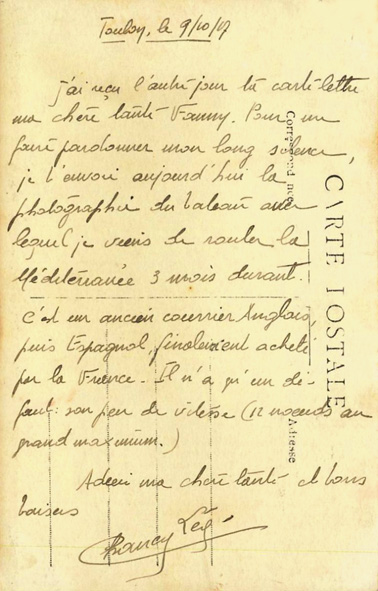 Toulon, le 9/10/17
j'ai reçu l'autre jour ta carte-lettre
ma chère tante Fanny. Pour me
faire pardonner mon long silence,
je t'envoi aujourd'hui la
photographie du bateau avec
lequel je viens de rouler la
Méditerranée 3 mois durant.
C'est un ancien courrier Anglais,
puis Espagnol, finalement acheté
par la France. Il n'a qu'un dé-
faut: son peu de vitesse (12 noeuds au
grand maximum.)
Adieu ma chère tante et bons
baisers
CARTE POSTALE
Correspondance
Adresse